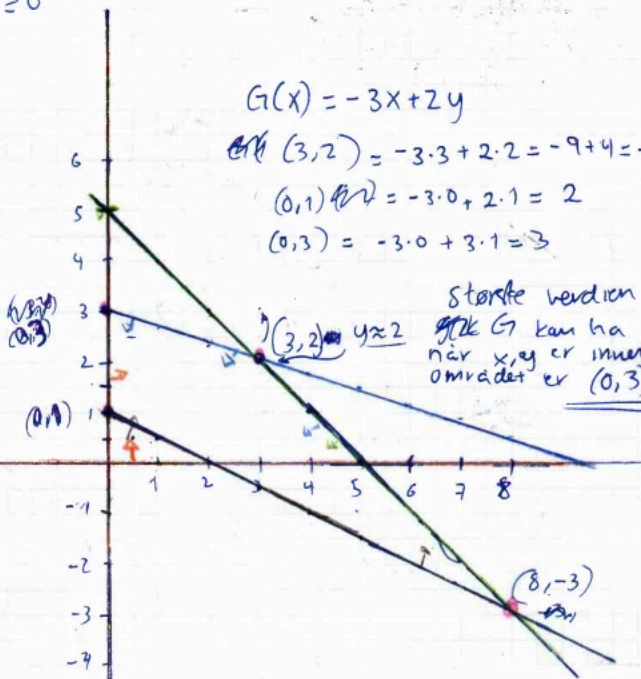 =0
G(x) = -3x+2y
(3,2) = -3·3+2·2 = -9+4 = -
(0,1) = -3·0+2·1 = 2
(0,3) = -3·0+3·1 = 3
største verdien
G kan ha
når x,y er inne
området er (0,3)
6
5
4
3
2
1
(0,3)
(0,1)
(3,2) y≈2
1 2 3 4 5 6 7 8
-1
-2
-3
-4
(8,-3)